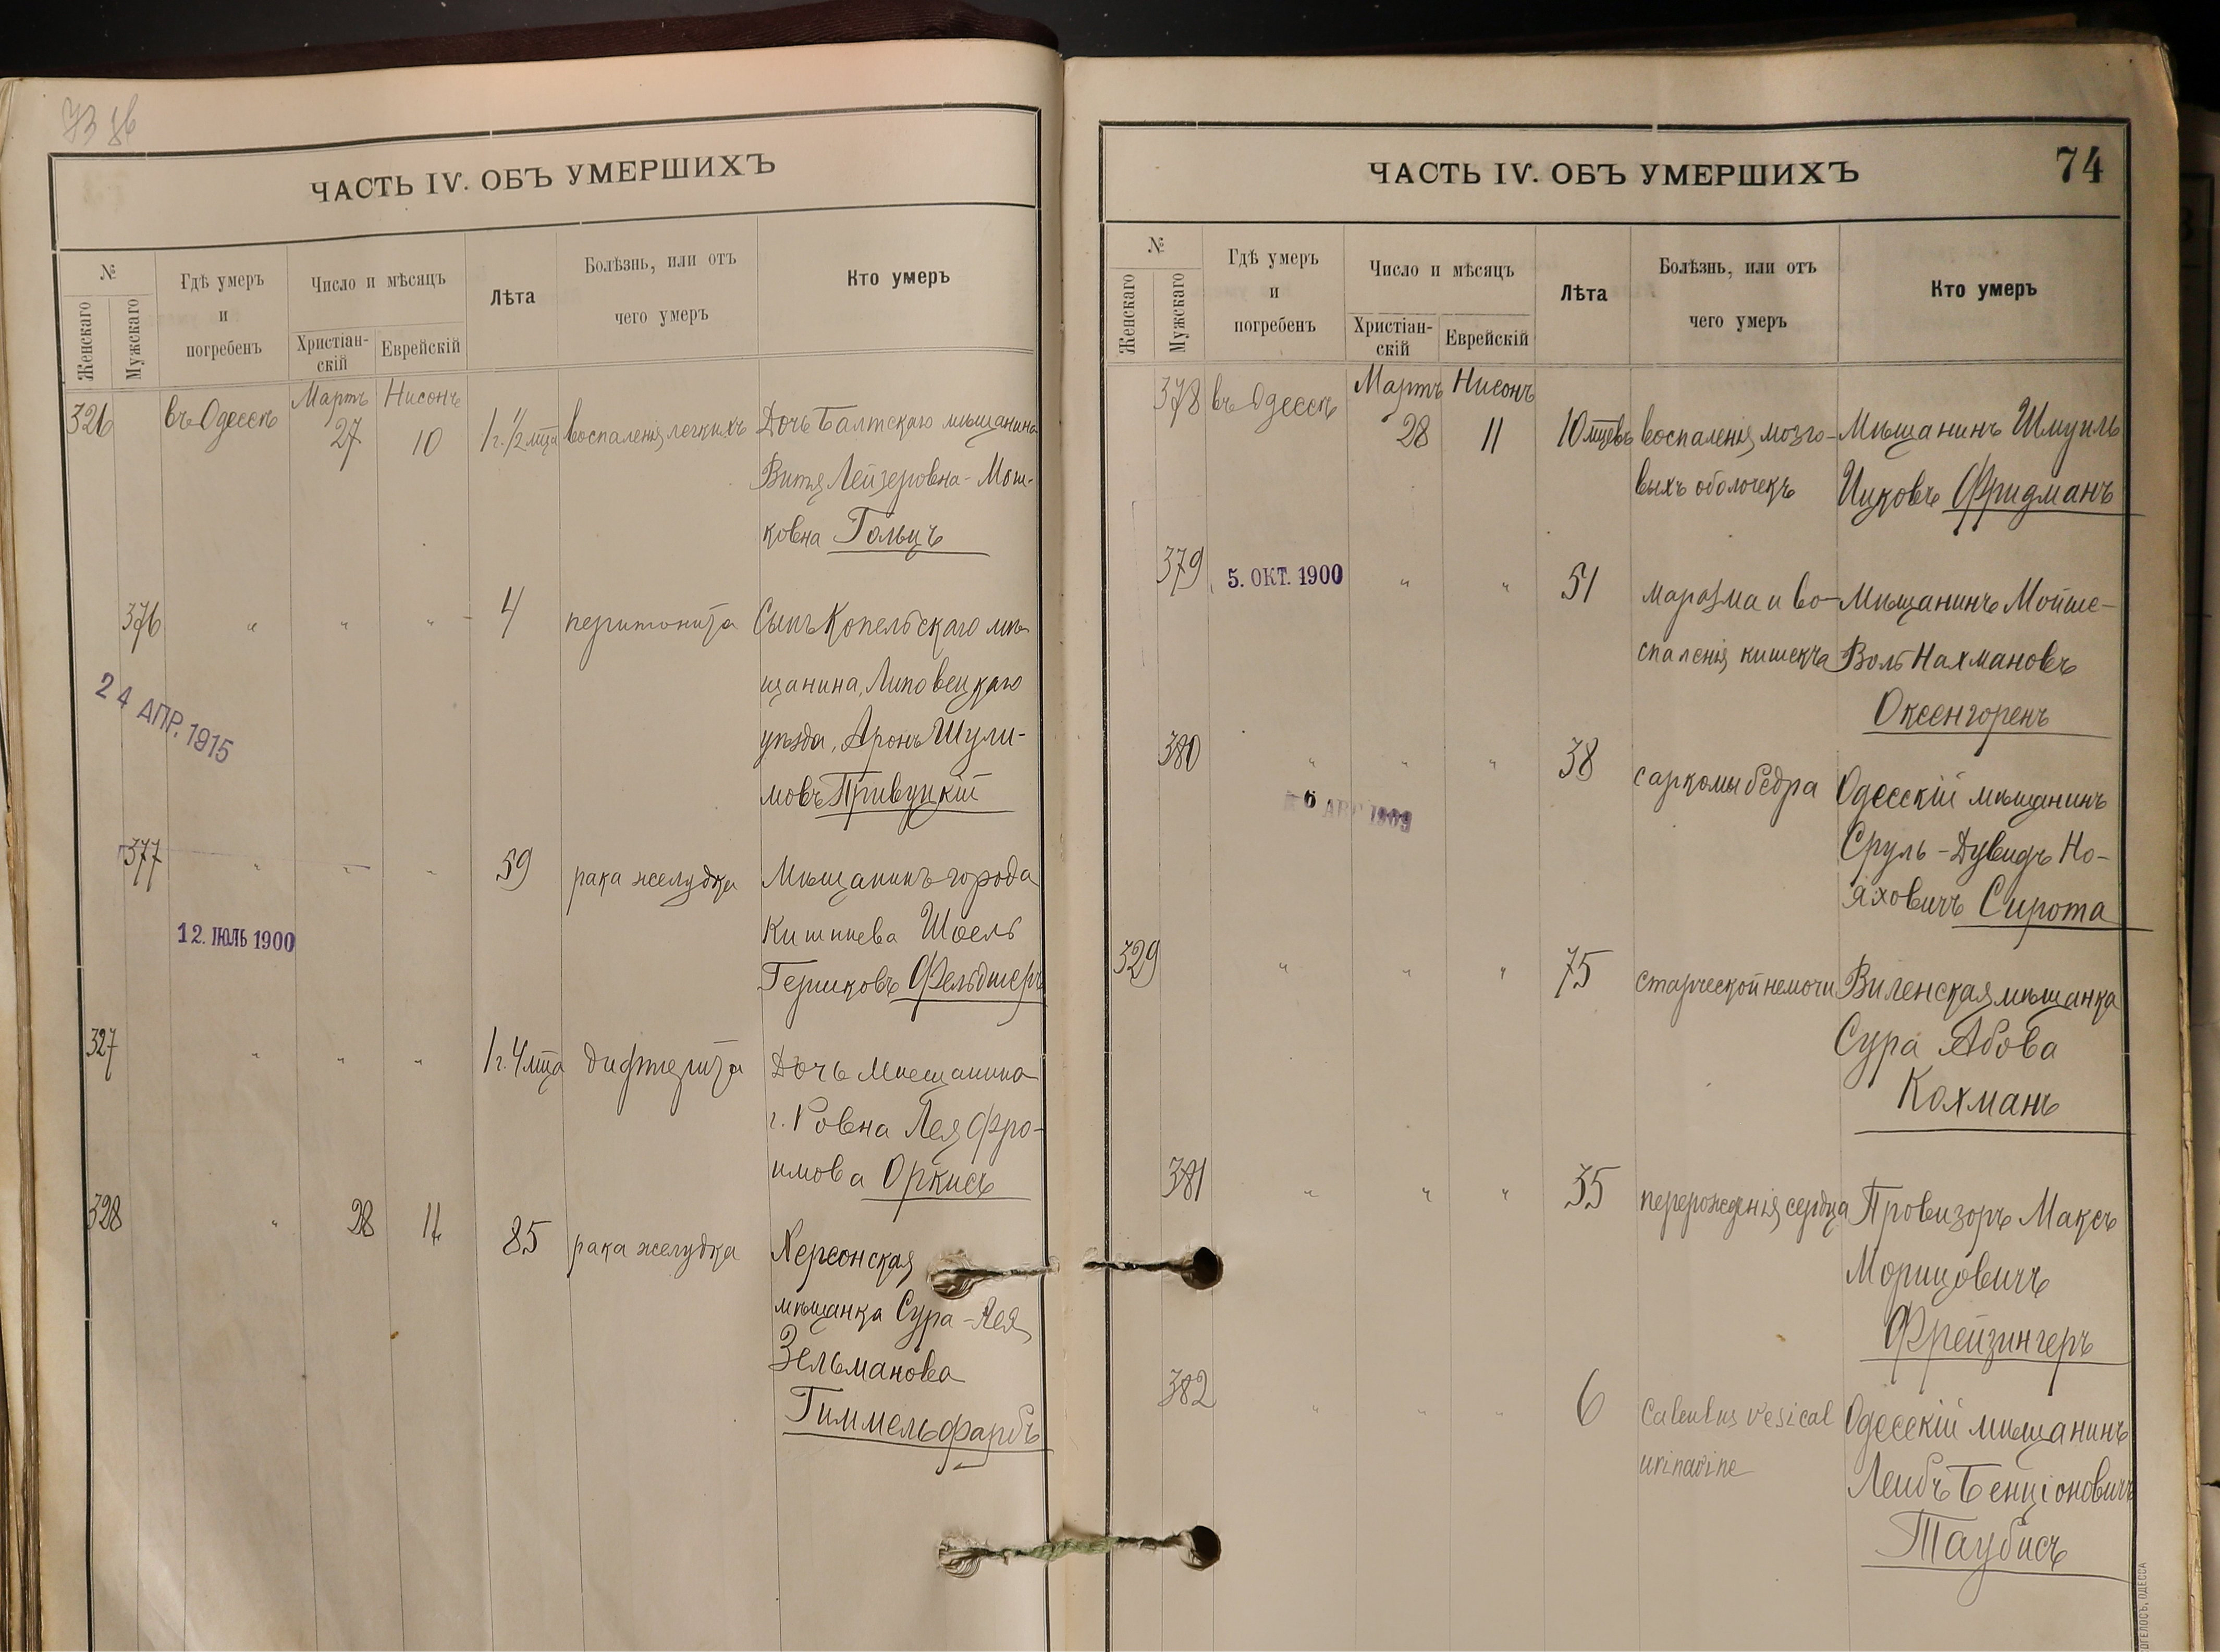 73 об
ЧАСТЬ IV. ОБЪ УМЕРШИХЪ
№
Женскаго
Мужскаго
Гдѣ умеръ
и
погребенъ
Число и мѣсяцъ
Христіан-
скій
Еврейскій
Лѣта
Болѣзнь, или отъ
чего умеръ
Кто умеръ
Мартъ Нисонъ
326 въ Одессѣ 27 10 1 г. 1/2 мца воспаленія легкихъ Дочь Балтскаго мѣщанина
Витя Лейзеровна-Мош-
ковна Гольцъ
376 " " " 4 перитонита Сынъ Копельскаго мѣ-
щанина, Липовецкаго
уѣзда, Аронъ Шули-
мовъ Привуцкій
24 АПР. 1915
377 " " " 59 рака желудка Мѣщанинъ города
Кишинева Шоель
Гершковъ Фельдшеръ
12. ІЮЛЬ 1900
327 " " " 1 г. 4 мца дифтерита Дочь мѣщанина
г. Ровна Лея Фро-
имова Оркисъ
328 " 28 11 85 рака желудка Херсонская
мѣщанка Сура-Лея
Зельманова
Гиммельфарбъ
ЧАСТЬ IV. ОБЪ УМЕРШИХЪ 74
№
Женскаго
Мужскаго
Гдѣ умеръ
и
погребенъ
Число и мѣсяцъ
Христіан-
скій
Еврейскій
Лѣта
Болѣзнь, или отъ
чего умеръ
Кто умеръ
Мартъ Нисонъ
378 въ Одессѣ 28 11 10 мцевъ воспаленія мозго- Мѣщанинъ Шмуиль
выхъ оболочекъ Ицковъ Фридманъ
379 5. ОКТ. 1900 " " 51 маразма и во- Мѣщанинъ Мойше-
спаленія кишекъ Воль Нахмановъ
Оксенгоренъ
380 " " " 38 саркомы бедра Одесскій мѣщанинъ
6 АВГ 1909
Сруль-Дувидъ Но-
яховичъ Сирота
329 " " " 75 старческой немочи Виленская мѣщанка
Сура Абова
Кохманъ
381 " " " 35 перерожденія сердца Провизоръ Максъ
Морицовичъ
Фрейзингеръ
382 " " " 6 Calculus vesical Одесскій мѣщанинъ
urinarine Лейбъ Бенціоновичъ
Таубисъ